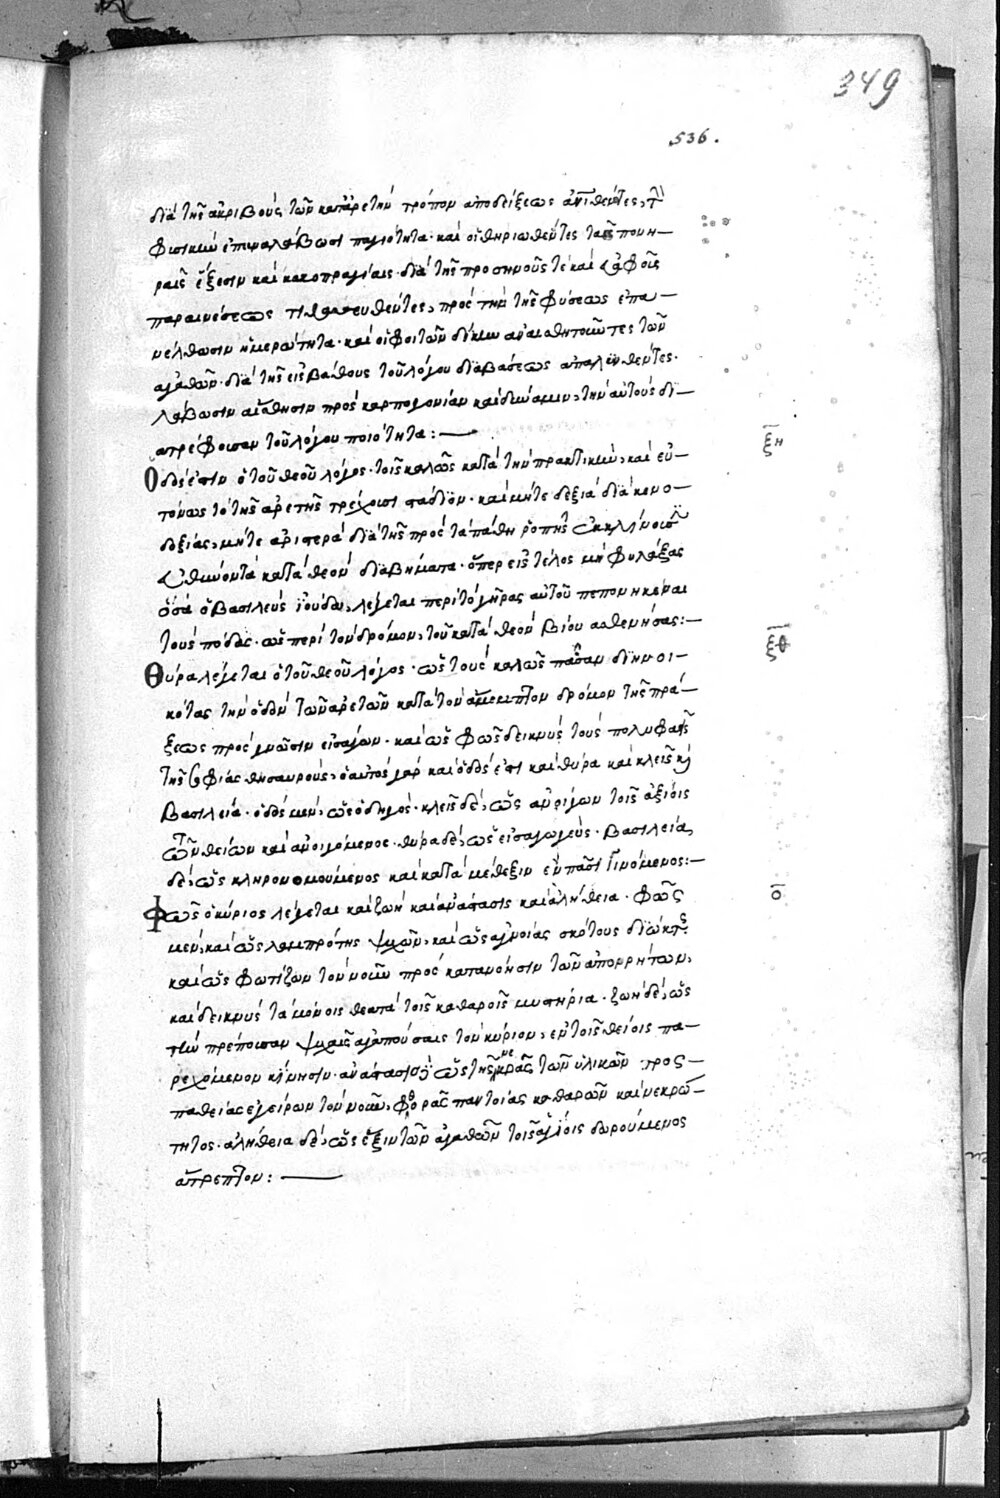 349
536.
διὰ τῆς ἀκριβοῦς τῶν κατ' ἀρετὴν τρόπων ἀποδείξεως ἀντιθέντες, τὴν
φυσικὴν ἐπιναλάβωσι παγιότητα· καὶ οἱ θηριωθέντες ταῖς πονη-
ραῖς ἕξεσιν καὶ κακοπραγίαις· διὰ τῆς προσηνοῦς τὲ καὶ σαφοῦς
παραινέσεως τιθασσευθέντες, πρὸς τὴν τῆς φύσεως ἐπα-
νέλθωσιν ἡμερότητα· καὶ οἱ
ἀγαθῶν· διὰ τῆς εἰς βάθους τοῦ λόγου διαβάσεως
λάβωσιν αἴσθησιν πρὸς καρπογονίαν καὶ δύναμιν, τὴν αὐτοὺς δι-
ατρέφουσαν τοῦ λόγου ποιότητα:
Ὁδός ἐστιν ὁ τοῦ θεοῦ λόγος· τοῖς καλῶς κατὰ τὴν πρακτικὴν, καὶ εὐ-
τόνως τὸ τῆς ἀρετῆς τρέχουσι στάδιον· καὶ μήτε δεξιὰ διὰ κενο-
δοξίας, μήτε ἀριστερὰ διὰ τῆς πρὸς τὰ πάθη ῥοπῆς ἐκκλίνουσι
εὐθύνοντα κατὰ θεὸν διαβήματα· ὅπερ εἰς τέλος μὴ φυλάξας
ὁ βασιλεὺς ἰούδα, λέγεται περὶ τὸ γῆρας αὐτοῦ πεπονηκέναι
τοὺς πόδας· ὡς περὶ τὸν δρόμον, τοῦ κατὰ θεὸν βίου ἀσθενήσας:
Θύρα λέγεται ὁ τοῦ θεοῦ λόγος· ὡς τοὺς καλῶς πᾶσαν διηνοι-
κότας τὴν ὁδὸν τῶν ἀρετῶν κατὰ τὸν ἄμεμπτον δρόμον τῆς πρά-
ξεως πρὸς γνῶσιν εἰσάγων· καὶ ὡς φῶς δεικνὺς τοὺς πολυφαεῖς
τῆς σοφίας θησαυρούς, ὁ αὐτὸς γὰρ καὶ ὁδός ἐστι καὶ θύρα καὶ κλεὶς καὶ
βασιλεία· ὁδὸς μὲν, ὡς ὁδηγός· κλεὶς δὲ, ὡς ἀνοίγων τοῖς ἀξίοις
τῶν θείων καὶ ἀνοιγόμενος· θύρα δὲ, ὡς εἰσαγωγεύς· βασιλεία,
δὲ, ὡς κληρονομούμενος καὶ κατὰ μέθεξιν ἐν πᾶσι γινόμενος:
Φῶς ὁ κύριος λέγεται καὶ ζωὴ καὶ ἀνάστασις καὶ ἀλήθεια· φῶς
μὲν, καὶ ὡς λαμπρότης ψυχῶν, καὶ ὡς ἀγνοίας σκότους διώκτης
καὶ ὡς φωτίζων τὸν νοῦν πρὸς κατανόησιν τῶν ἀπορρήτων,
καὶ δεικνὺς τὰ μόνοις θεατὰ τοῖς καθαροῖς μυστήρια· ζωὴ δὲ, ὡς
τὴν πρέπουσαν ψυχαῖς ἀγαπούσαις τὸν κύριον, ἐν τοῖς θείοις πα-
ρεχόμενον κίνησιν· ἀνάστασις δὲ, ὡς τῆς νεκρᾶς τῶν ὑλικῶν προς-
παθείας ἐγείρων τὸν νοῦν, φθορᾶς παντοίας καθαρῶν καὶ νεκρώ-
τητος· ἀλήθεια δὲ, ὡς ἕξιν τῶν ἀγαθῶν τοῖς ἀξίοις δωρούμενος
ἄτρεπτον:
ξη
ξθ
ο